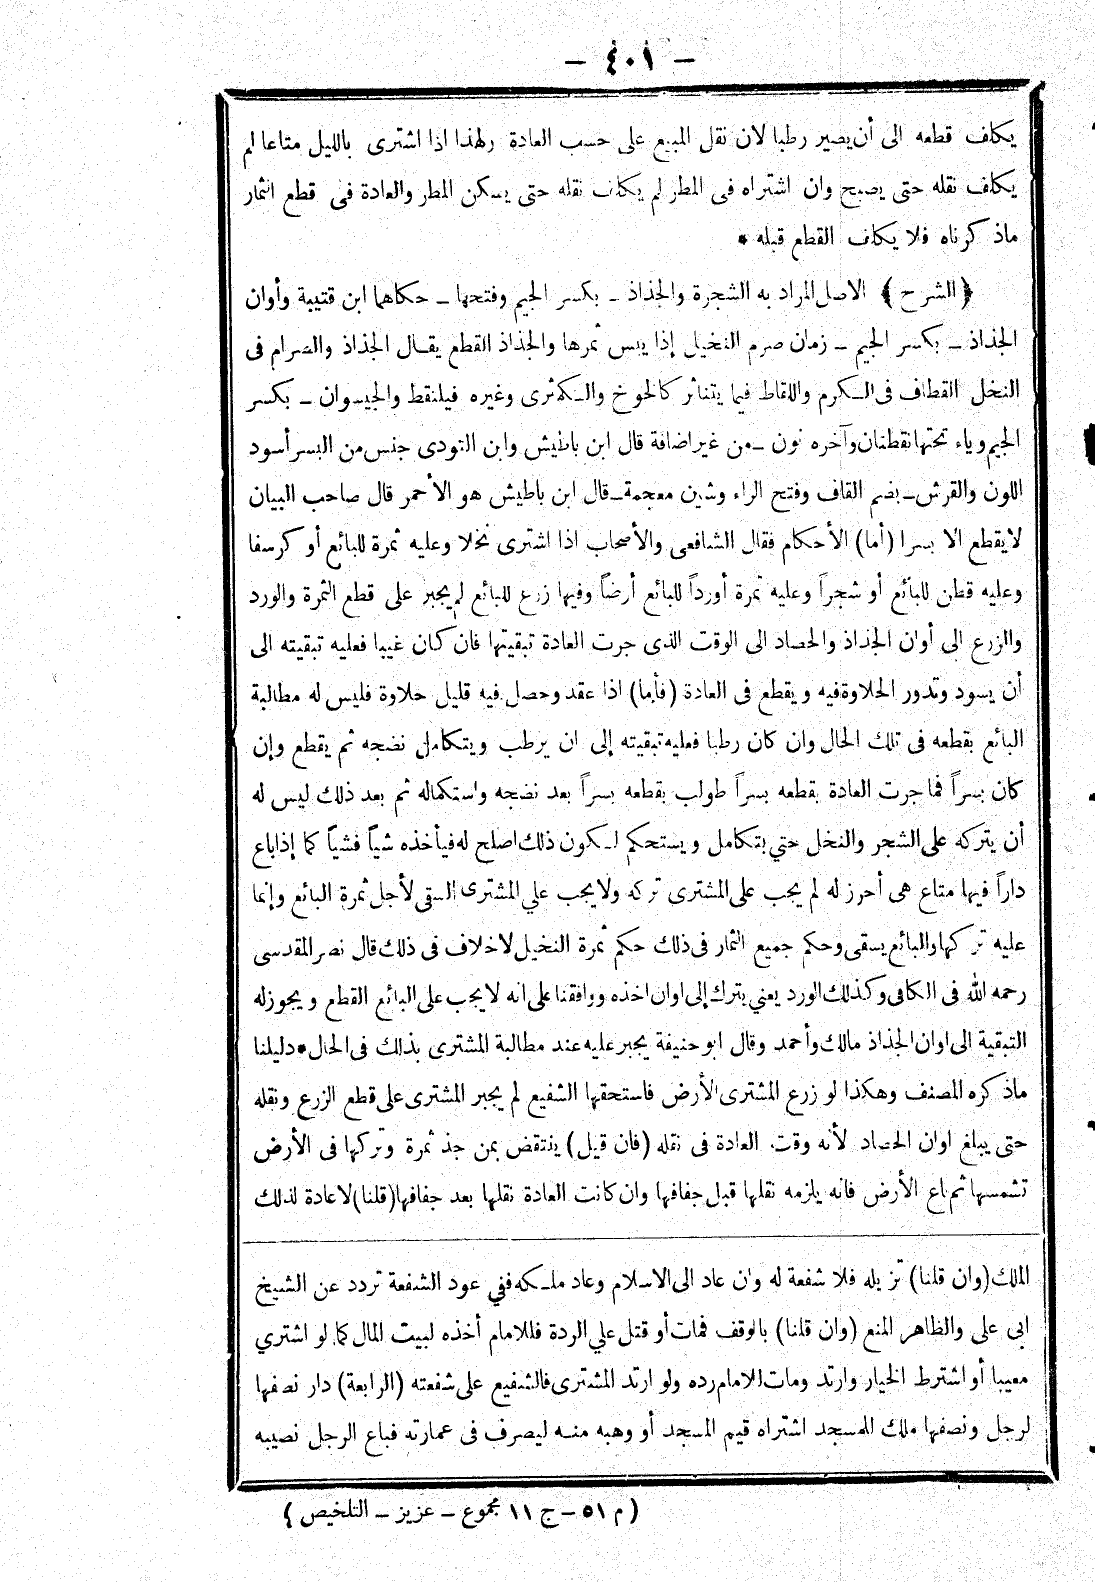 - ٤٠١ -
يكلف قطعه الى أن يصير رطبا لان نقل المبيع على حسب العادة ولهذا اذا اشترى بالليل متاعا لم
يكلف نقله حتى يصبح وان اشتراه فى المطر لم يكلف نقله حتى يسكن المطر والعادة فى قطع الثمار
ماذ كرناه فلا يكلف القطع قبله *
﴿الشرح﴾ الاصل المراد به الشجرة والجذاذ - بكسر الجيم وفتحها - حكاهما ابن قتيبة وأوان
الجذاذ - بكسر الجيم - زمان صرم النخيل إذا يبس ثمرها والجذاذ القطع يقال الجذاذ والصرام فى
النخل القطاف فى الكرم واللقاط فيما يتناثر كالخوخ والكمثرى وغيره فيلتقط والجيسوان - بكسر
الجيم وياء تحتها نقطتان وآخره نون - من غير اضافة قال ابن باطيش وابن النودى جنس من البسر أسود
اللون والقرش - بضم القاف وفتح الراء وشين معجمة - قال ابن باطيش هو الأحمر قال صاحب البيان
لا يقطع الا بسرا (أما) الأحكام فقال الشافعى والأصحاب اذا اشترى نخلا وعليه ثمرة للبائع أو كرسفا
وعليه قطن للبائع أو شجراً وعليه ثمرة أورداً للبائع أرضاً وفيها زرع للبائع لم يجبر على قطع الثمرة والورد
والزرع الى أوان الجذاذ والحصاد الى الوقت الذى جرت العادة تبقيتها فان كان عنبا فعليه تبقيته الى
أن يسود وتدور الحلاوة فيه ويقطع فى العادة (فأما) اذا عقد وحصل فيه قليل حلاوة فليس له مطالبة
البائع بقطعه فى تلك الحال وان كان رطبا فعليه تبقيته إلى ان يرطب ويتكامل نضجه ثم يقطع وإن
كان بسراً فما جرت العادة بقطعه بسراً طولب بقطعه بسراً بعد نضجه واستكماله ثم بعد ذلك ليس له
أن يتركه على الشجر والنخل حتي يتكامل ويستحكم لكون ذلك اصلح له فيأخذه شيأ فشيأ كما إذا باع
داراً فيها متاع هى أحرز له لم يجب على المشترى تركه ولا يجب علي المشترى السقى لأجل ثمرة البائع وإنما
عليه تركها والبائع يسقى وحكم جميع الثمار فى ذلك حكم ثمرة النخيل لا خلاف فى ذلك قال نصر المقدسى
رحمه الله فى الكافى وكذلك الورد يعني يترك إلى اوان اخذه ووافقنا على انه لا يجب على البائع القطع ويجوز له
التبقية الى اوان الجذاذ مالك وأحمد وقال ابو حنيفة يجبر عليه عند مطالبة المشترى بذلك فى الحال * دليلنا
ماذ كره المصنف وهكذا لو زرع المشترى الأرض فاستحقها الشفيع لم يجبر المشترى على قطع الزرع ونقله
حتى يبلغ اوان الحصاد لأنه وقت العادة فى نقله (فان قيل) ينتقض بمن جذ ثمرة وتركها فى الأرض
تشمسها ثم باع الأرض فانه يلزمه نقلها قبل جفافها وان كانت العادة نقلها بعد جفافها (قلنا) لا عادة لذلك
الملك (وان قلنا) تزيله فلا شفعة له وان عاد الى الاسلام وعاد ملكه ففي عود الشفعة تردد عن الشيخ
ابى على والظاهر المنع (وان قلنا) بالوقف فمات أو قتل علي الردة فللامام أخذه لبيت المال كما لو اشتري
معيبا أو اشترط الخيار وارتد ومات للامام رده ولو ارتد المشترى فالشفيع على شفعته (الرابعة) دار نصفها
لرجل ونصفها ملك للمسجد اشتراه قيم المسجد أو وهبه منه ليصرف فى عمارته فباع الرجل نصيبه
(م ٥١ - ج ١١ مجموع - عزيز - التلخيص)